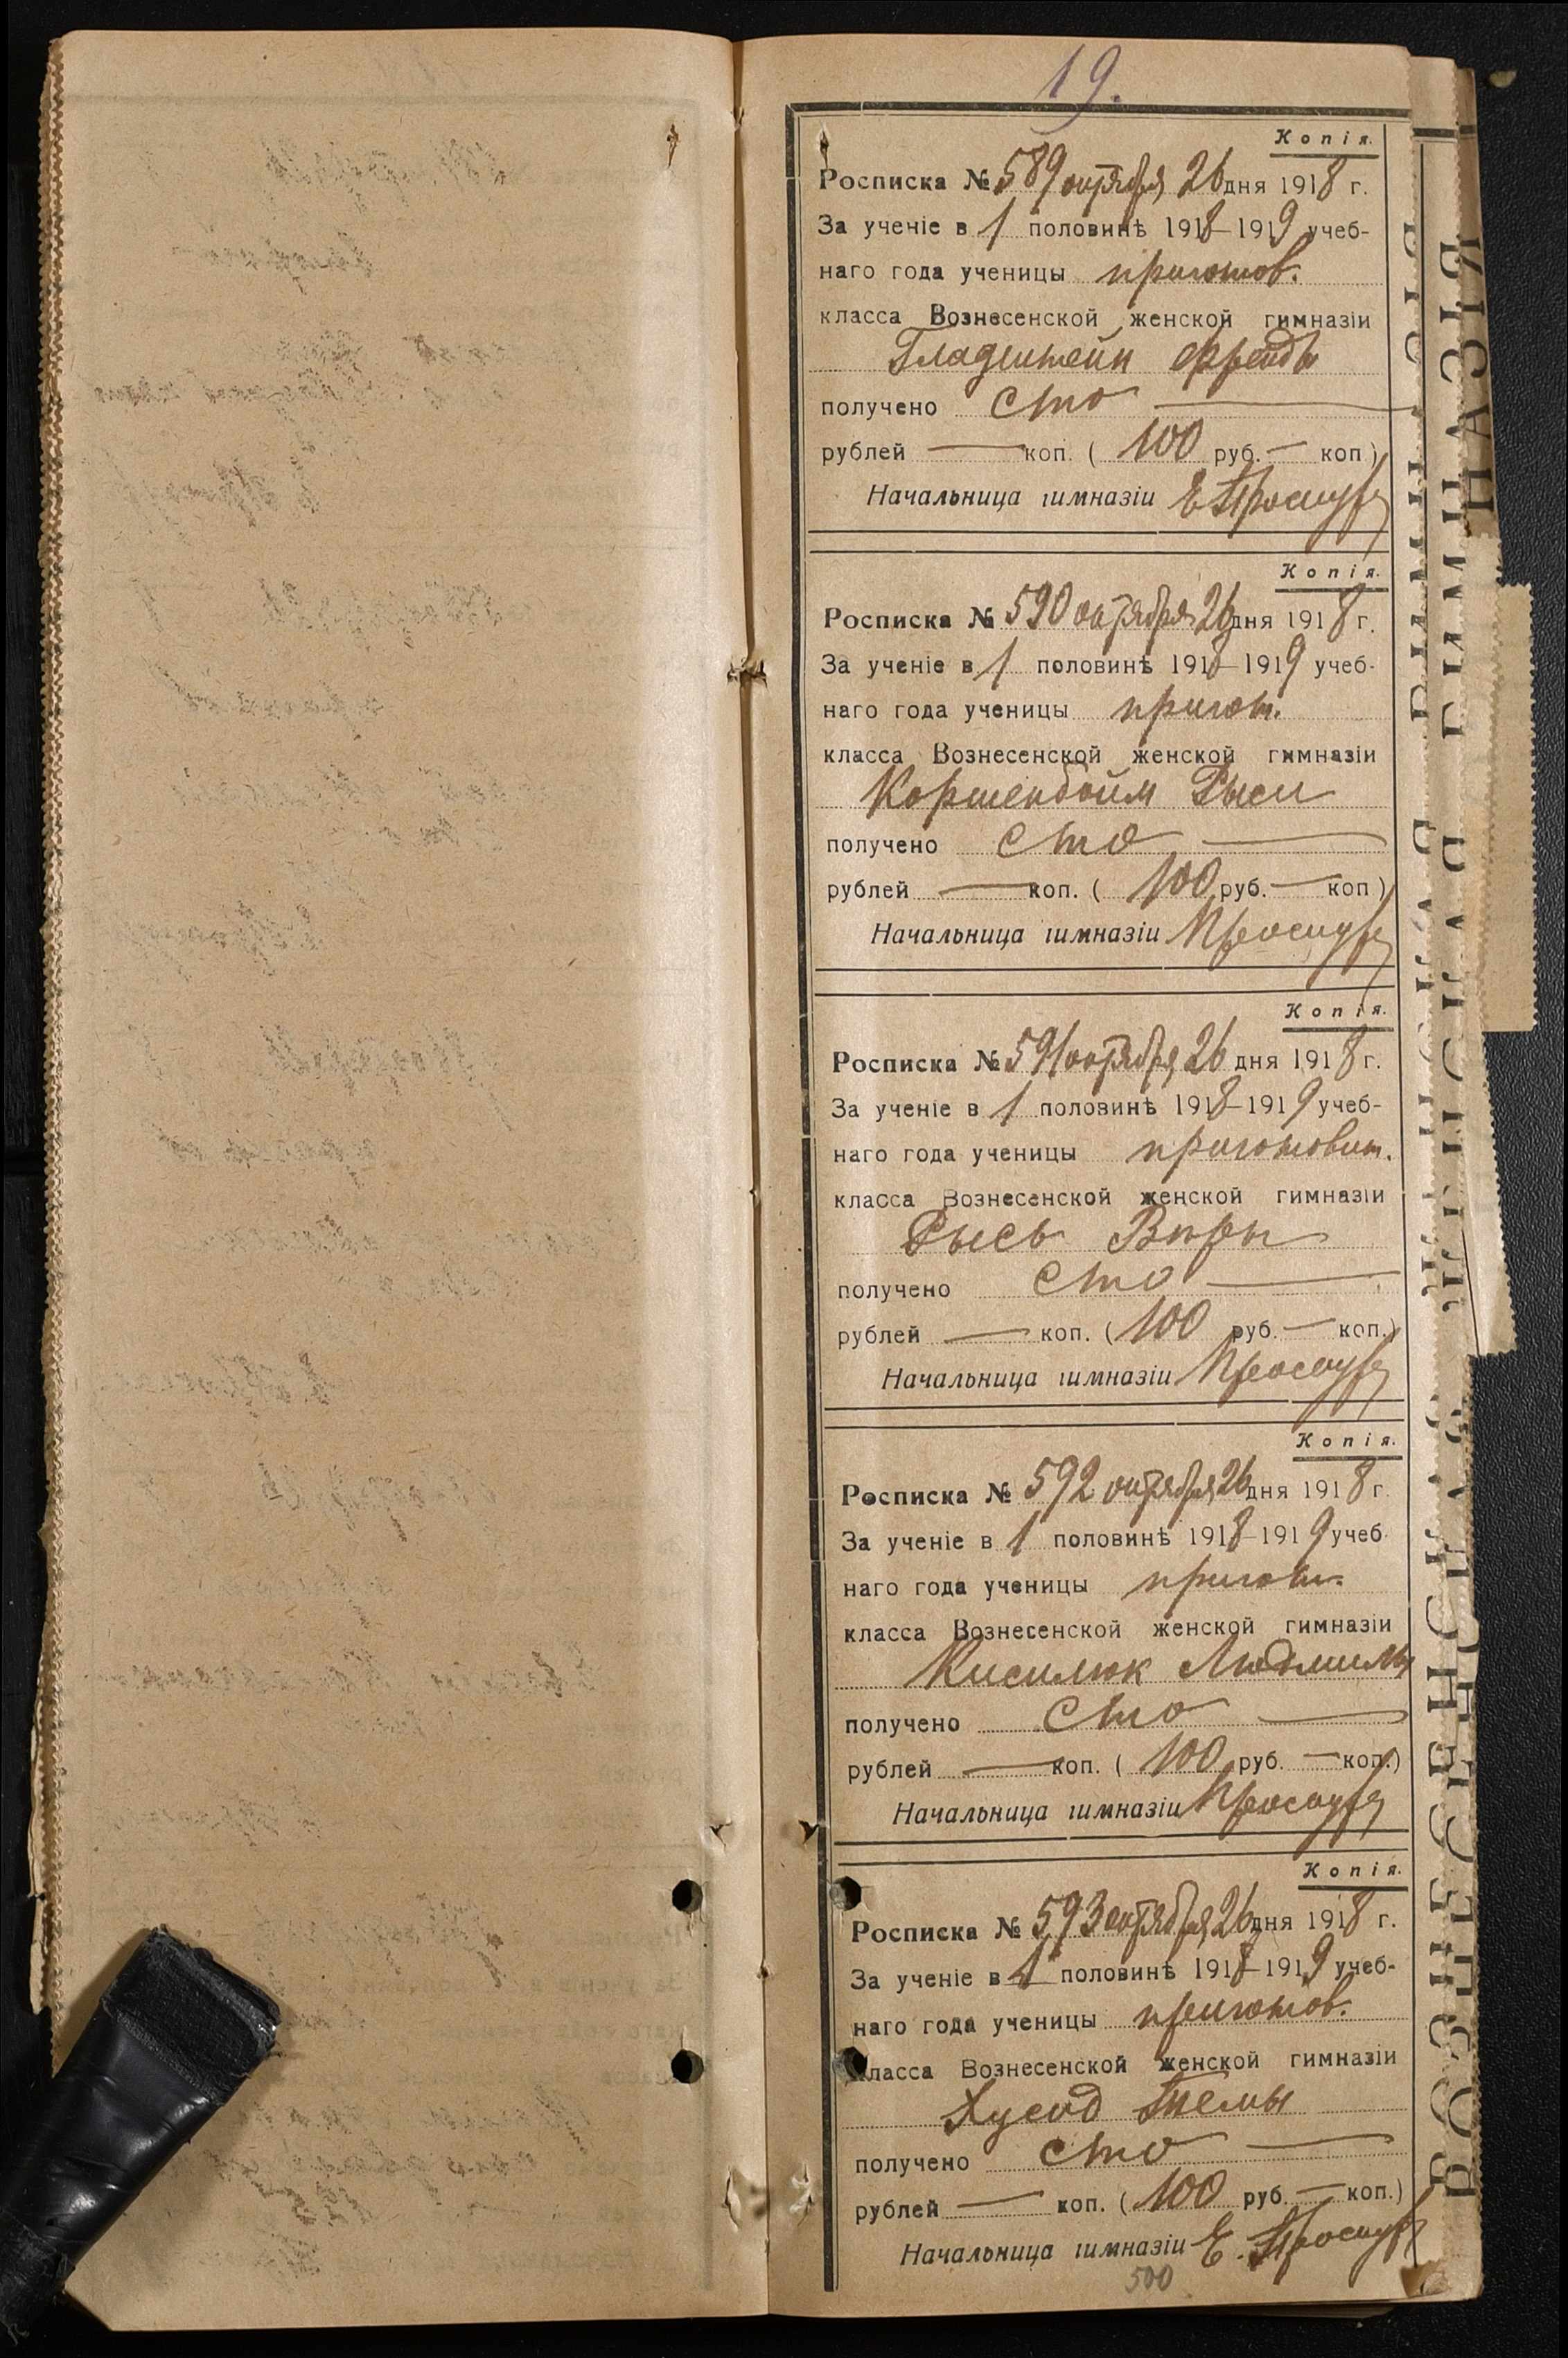 19.
Копія.
Росписка № 589 октября 26 дня 1918 г.
За ученіе в 1 половинѣ 1918-1919 учеб-
наго года ученицы приготов.
класса Вознесенской женской гимназіи
Гладштейн Фрейды
получено сто
рублей — коп. ( 100 руб. — коп )
Начальница гимназіи
Копія.
Росписка № 590 октября 26 дня 1918 г.
За ученіе в 1 половинѣ 1918-1919 учеб-
наго года ученицы пригот.
класса Вознесенской женской гимназіи
Коршенбойм Рыси
получено сто
рублей — коп. ( 100 руб. — коп )
Начальница гимназіи
Копія.
Росписка № 591 октября 26 дня 1918 г.
За ученіе в 1 половинѣ 1918-1919 учеб-
наго года ученицы приготовит.
класса Вознесенской женской гимназіи
Рысь Вѣры
получено сто
рублей — коп. ( 100 руб. — коп.)
Начальница гимназіи
Копія.
Росписка № 592 октября 26 дня 1918 г.
За ученіе в 1 половинѣ 1918-1919 учеб-
наго года ученицы пригот.
класса Вознесенской женской гимназіи
Кисилюк Людмилы
получено сто
рублей — коп. ( 100 руб. — коп.)
Начальница гимназіи
Копія.
Росписка № 593 октября 26 дня 1918 г.
За ученіе в 1 половинѣ 1918-1919 учеб-
наго года ученицы приготов.
класса Вознесенской женской гимназіи
Хусид Темы
получено сто
рублей — коп. ( 100 руб. — коп.)
Начальница гимназіи Е.
500